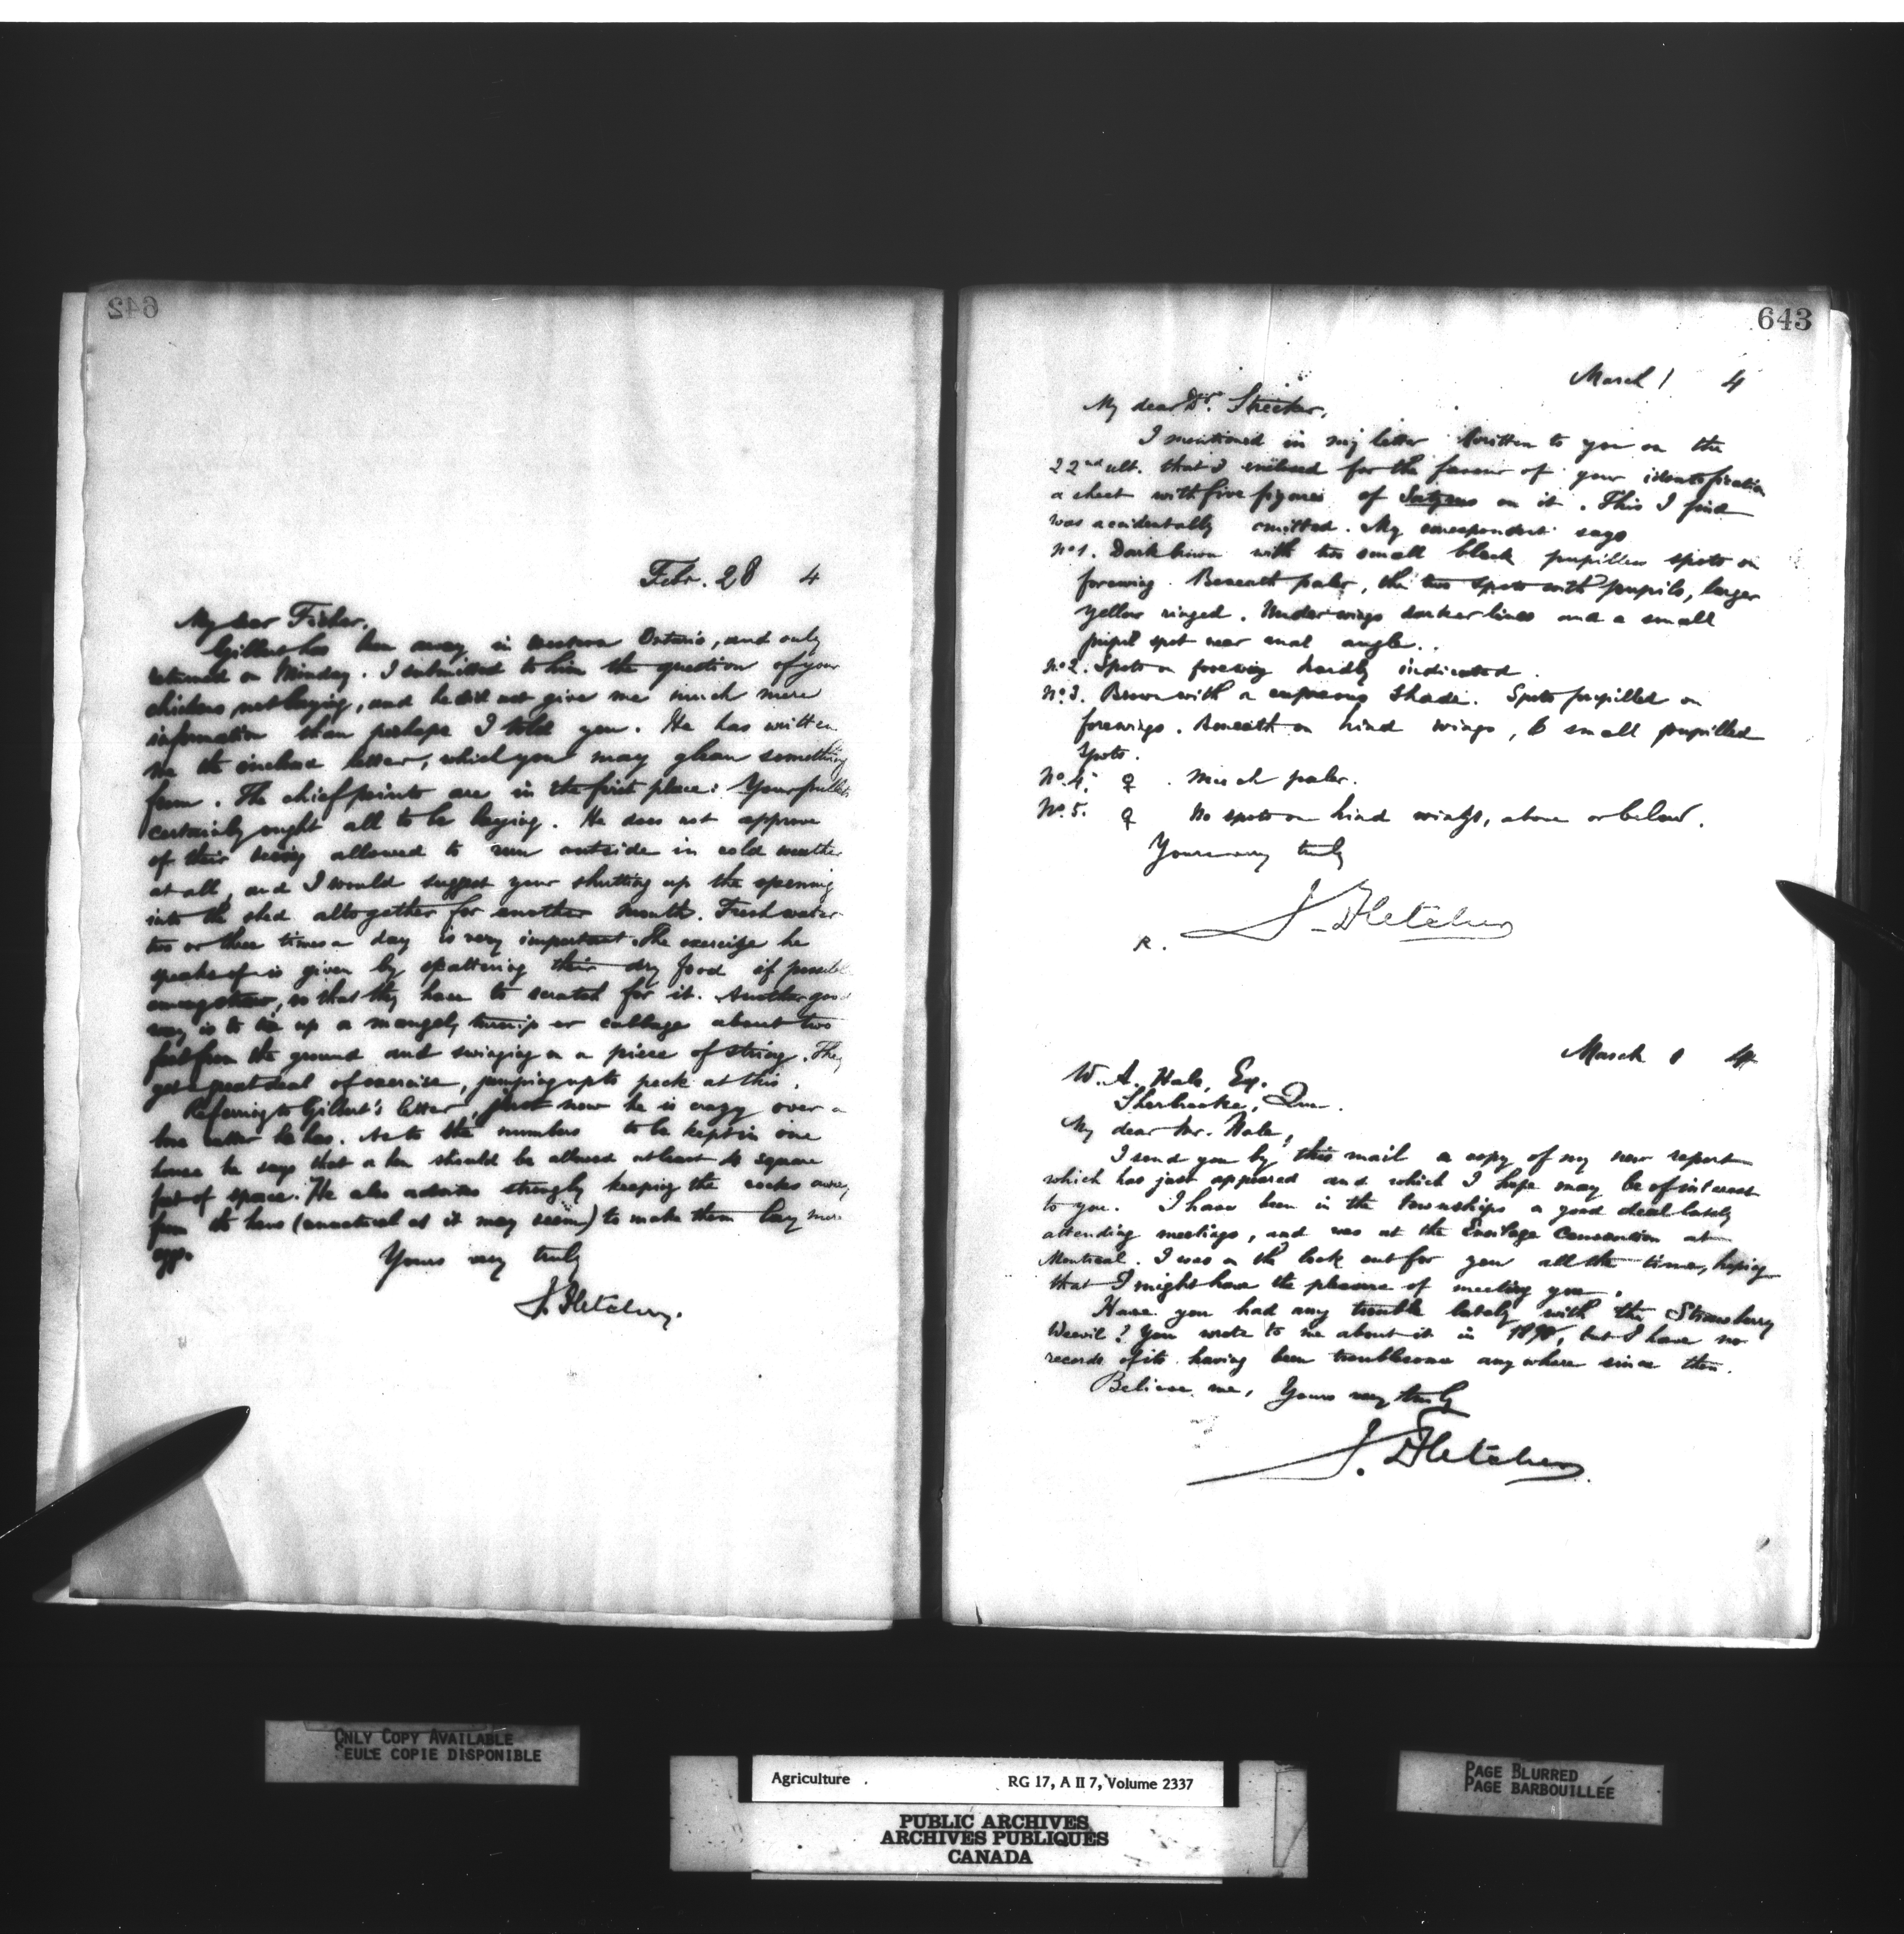 642
Febr. 28 4
My dear Fisher,
Gilbert has been away in western Ontario, and only
returned on Monday. I submitted to him the question of your
chickens not laying, and he did not give me much more
information than perhaps I told you. He has written
me the enclosed letter, which you may glean something
from. The chief points are in the first place: Your pullets
certainly ought all to be laying. He does not approve
of their being allowed to run outside in cold weather
at all, and I would suggest your shutting up the opening
into the shed altogether for another month. Fresh water
two or three times a day is very important. The exercise he
speaks of is given by scattering their dry food if possible
among straw, so that they have to scratch for it. Another good
way is to tie up a mangel, turnip or cabbage about two
feet from the ground and swinging on a piece of string. They
get a great deal of exercise, jumping up to peck at this.
Referring to Gilbert's letter, just now he is crazy over a
bone cutter he has. As to the numbers to be kept in one
house he says that a hen should be allowed at least square
feet of space. He also advises strongly keeping the cocks away
from the hens (unnatural as it may seem) to make them lay more
eggs.
Yours very truly
J. Fletcher.
643
March 1 4
My dear Dr. Strecker,
I mentioned in my letter written to you on the
22nd ult. that I enclosed for the favour of your identification
a sheet with five figures of Satyrus on it. This I find
was accidentally omitted. My correspondent says
No 1. Dark brown with two small black pupilless spots on
forewing. Beneath paler, the two spots with pupils, larger
yellow ringed. Underwings darker lines and a small
pupil spot near anal angle..
No 2. Spots on forewing hardly indicated.
No 3. Brown with a cupreous shade. Spots pupilled on
forewings. Beneath on hind wings, 6 small pupilled
spots.
No. 4. ♀ . Much paler.
No. 5. ♀ No spots on hind wings, above or below.
Yours very truly
J. Fletcher
R.
March 1 4
W. A. Hale, Esq.
Sherbrooke, Que.
My dear Mr. Hale,
I send you by this mail a copy of my new report
which has just appeared and which I hope may be of interest
to you. I have been in the Townships a good deal lately
attending meetings, and was at the Ensilage Convention at
Montreal. I was on the look out for you all the time, hoping
that I might have the pleasure of meeting you.
Have you had any trouble lately with the Strawberry
Weevil? You wrote to me about it in but I have no
records of its having been troublesome anywhere since then.
Believe me, Yours very truly
J. Fletcher
ONLY COPY AVAILABLE
SEULE COPIE DISPONIBLE
Agriculture RG 17, A II 7, Volume 2337
PUBLIC ARCHIVES
ARCHIVES PUBLIQUES
CANADA
PAGE BLURRED
PAGE BARBOUILLÉE